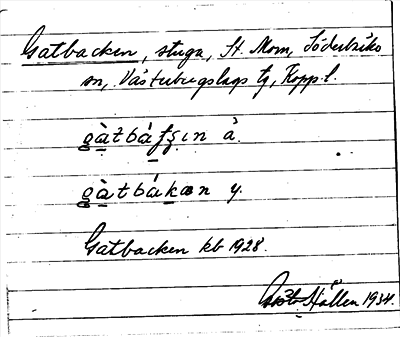 Gatbacken, stuga, St. Mom, Söderbärke
sn, Västerbergslags tg, Kopp. l.
gàtbáʄʂın ä.
gàtbákæn y.
Gatbacken kb 1928.
Hållen 1934.